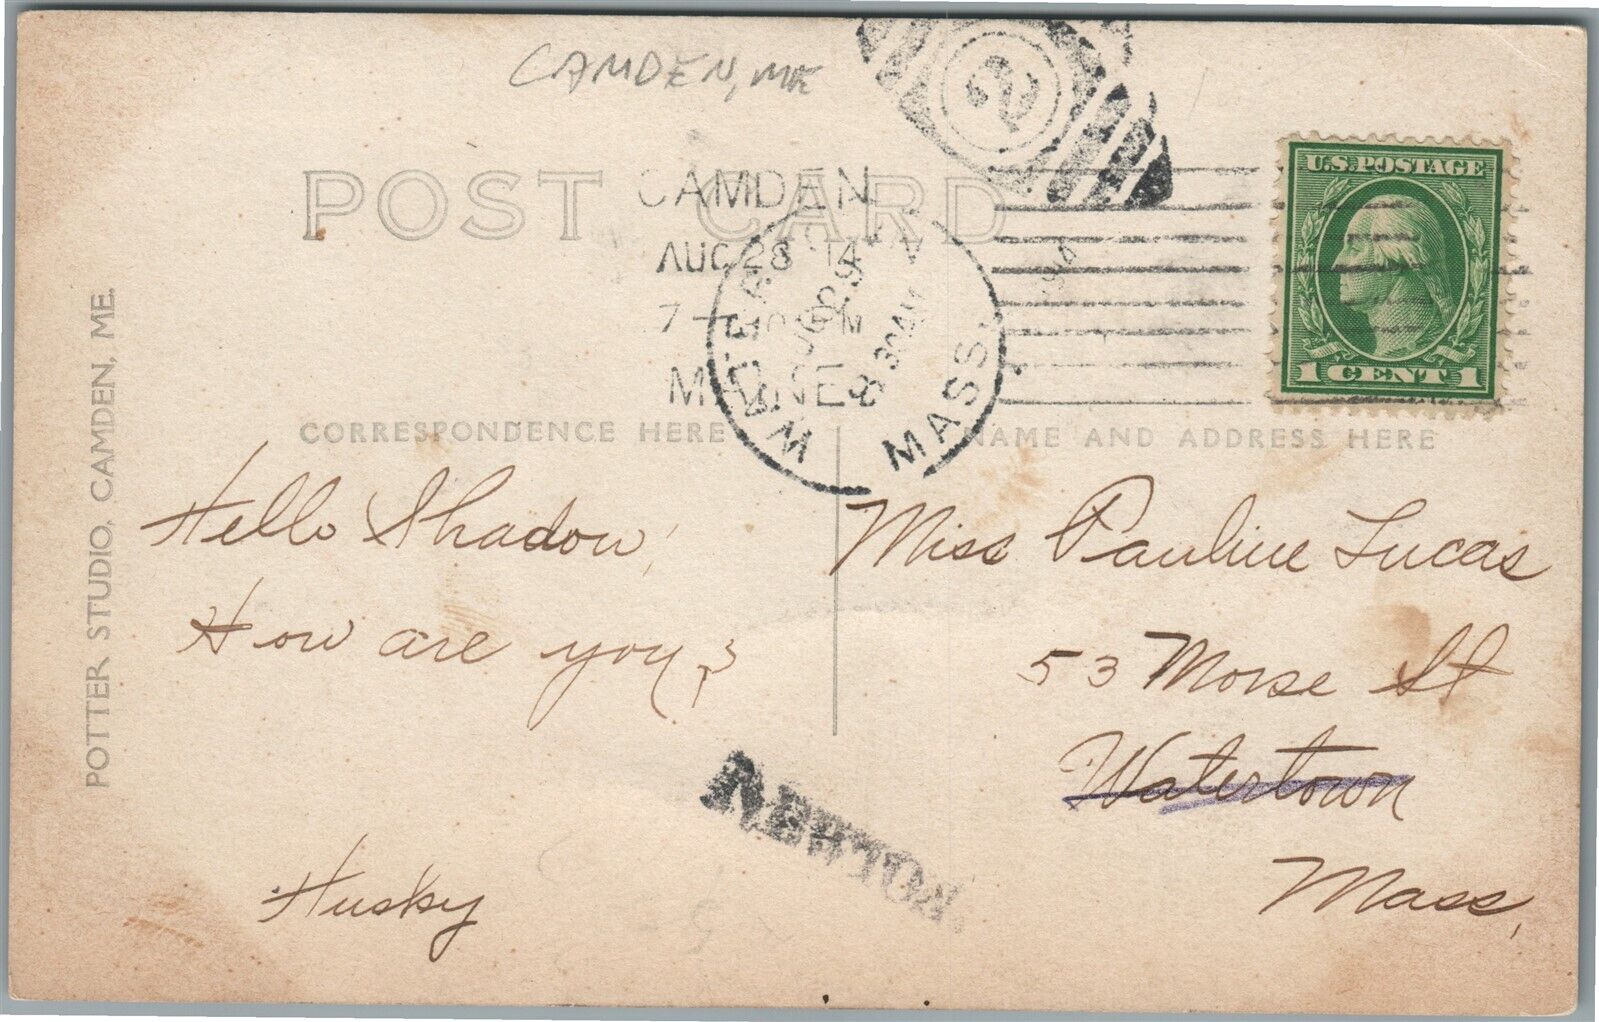 CAMDEN, ME
2
U.S. POSTAGE
1 CENT 1
POST CARD
CAMDEN
AUG 28 14
7 – PM
MAINE
WATERTOWN
AUG 29
8 30 AM
MASS.
CORRESPONDENCE HERE
NAME AND ADDRESS HERE
POTTER STUDIO, CAMDEN, ME.
Hello Shadow,
How are you?
Husky
Miss Pauline Lucas
53 Morse St
Watertown
Mass,
NEWTON